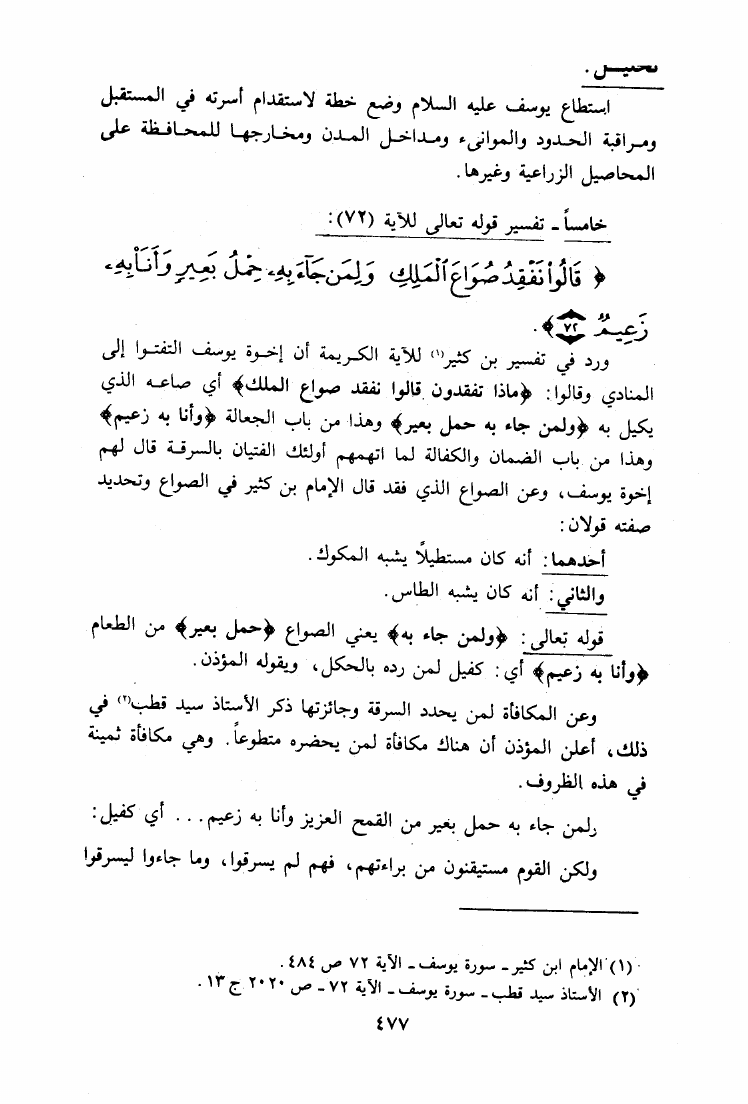 تحليل :
استطاع يوسف عليه السلام وضع خطة لاستقدام أسرته في المستقبل
ومراقبة الحدود والموانىء ومداخل المدن ومخارجها للمحافظة على
المحاصيل الزراعية وغيرها.
خامساً ـ تفسير قوله تعالى للآية (٧٢):
﴿ قَالُواْ نَفْقِدُ صُوَاعَ ٱلْمَلِكِ وَلِمَن جَآءَ بِهِۦ حِمْلُ بَعِيرٍ وَأَنَا۠ بِهِۦ
زَعِيمٌ ٧٢ ﴾.
ورد في تفسير بن كثير(١) للآية الكريمة أن إخوة يوسف التفتوا إلى
المنادي وقالوا: ﴿ماذا تفقدون قالوا نفقد صواع الملك﴾ أي صاعه الذي
يكيل به ﴿ولمن جاء به حمل بعير﴾ وهذا من باب الجعالة ﴿وأنا به زعيم﴾
وهذا من باب الضمان والكفالة لما اتهمهم أولئك الفتيان بالسرقة قال لهم
إخوة يوسف، وعن الصواع الذي فقد قال الإمام بن كثير في الصواع وتحديد
صفته قولان:
أحدهما: أنه كان مستطيلاً يشبه المكوك.
والثاني: أنه كان يشبه الطاس.
قوله تعالى: ﴿ولمن جاء به﴾ يعني الصواع ﴿حمل بعير﴾ من الطعام
﴿وأنا به زعيم﴾ أي: كفيل لمن رده بالحكل، ويقوله المؤذن.
وعن المكافأة لمن يحدد السرقة وجائزتها ذكر الأستاذ سيد قطب(٢) في
ذلك، أعلن المؤذن أن هناك مكافأة لمن يحضره متطوعاً. وهي مكافأة ثمينة
في هذه الظروف.
لمن جاء به حمل بعير من القمح العزيز وأنا به زعيم... أي كفيل:
ولكن القوم مستيقنون من براءتهم، فهم لم يسرقوا، وما جاءوا ليسرقوا
(١) الإمام ابن كثير ـ سورة يوسف ـ الآية ٧٢ ص ٤٨٤.
(٢) الأستاذ سيد قطب ـ سورة يوسف ـ الآية ٧٢ ـ ص ٢٠٢٠ ج ١٣.
٤٧٧